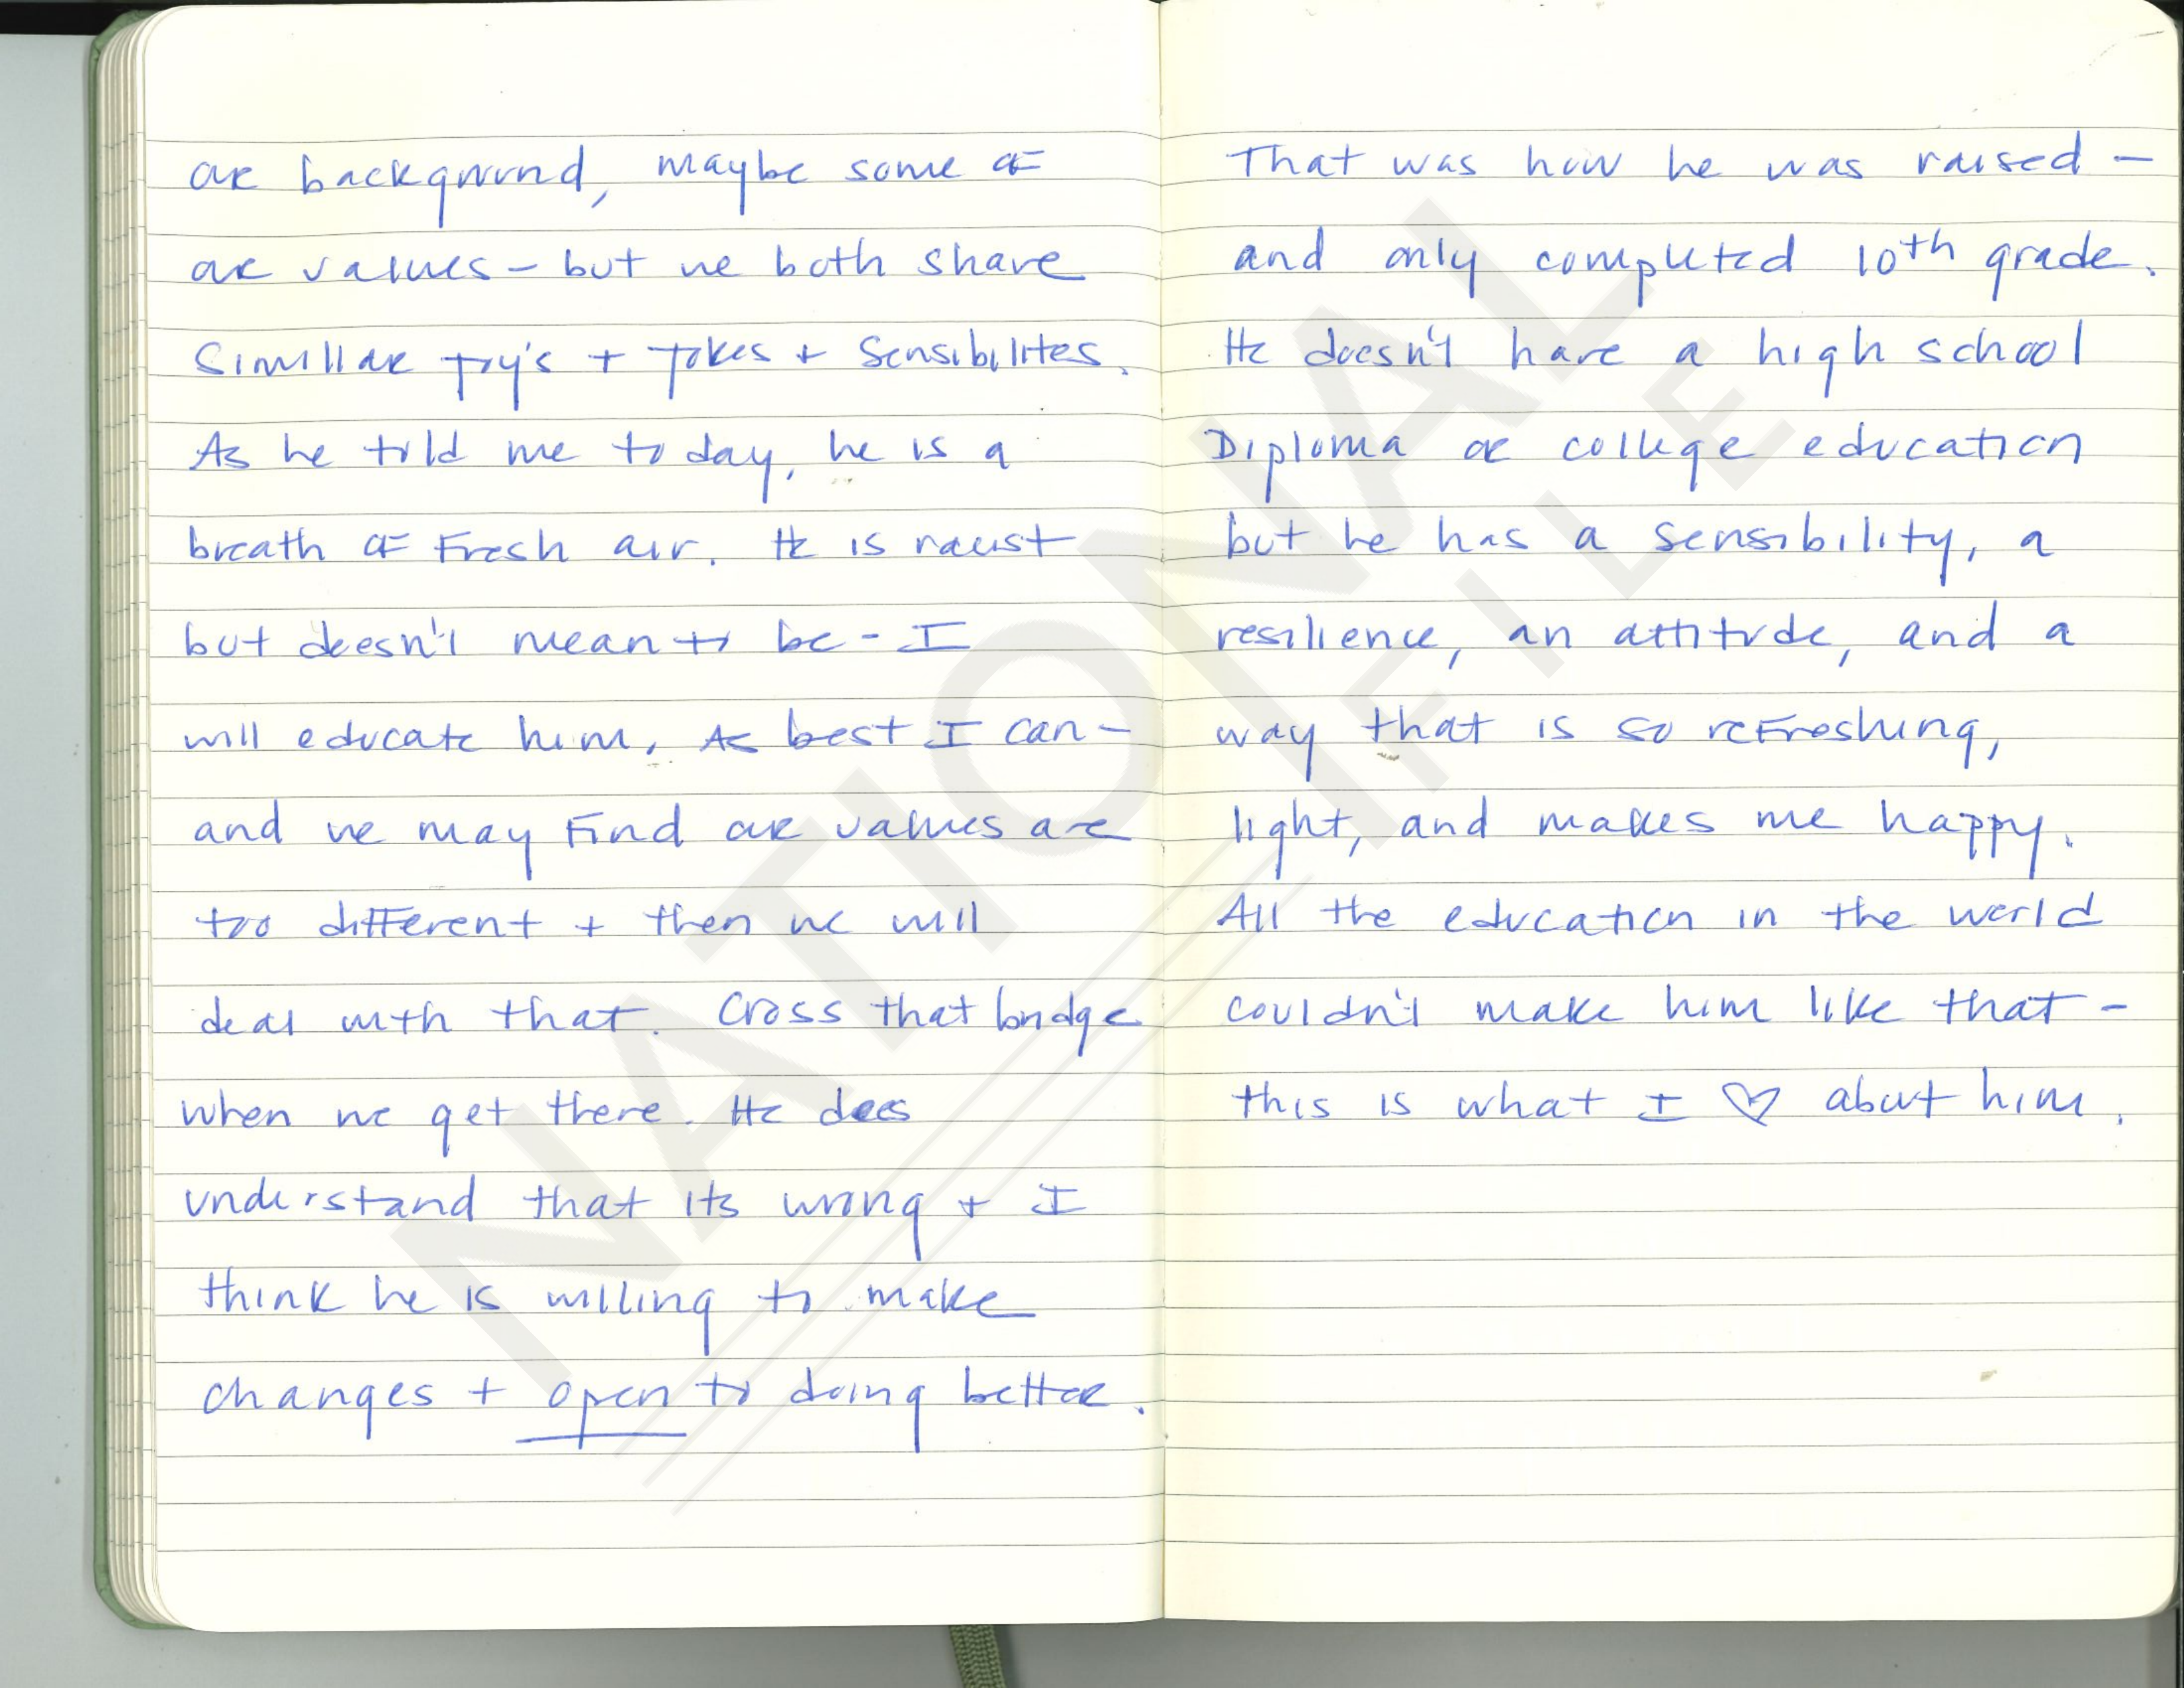 our background, maybe some of
our values - but we both share
Simillar joy's + jokes + Sensibilites.
As he told me today, he is a
breath of Fresh air. He is racist
but doesn't mean to be - I
will educate him. As best I can -
and we may Find our values are
too different + then we will
deal with that. Cross that bridge
when we get there. He does
understand that its wrong + I
think he is willing to make
changes + open to doing better.
That was how he was raised -
and only completed 10th grade.
He doesn't have a high school
Diploma or college education
but he has a sensibility, a
resilience, an attitude, and a
way that is so reFreshing,
light, and makes me happy.
All the education in the world
couldn't make him like that -
this is what I ♡ about him.
NATIONAL
FILE